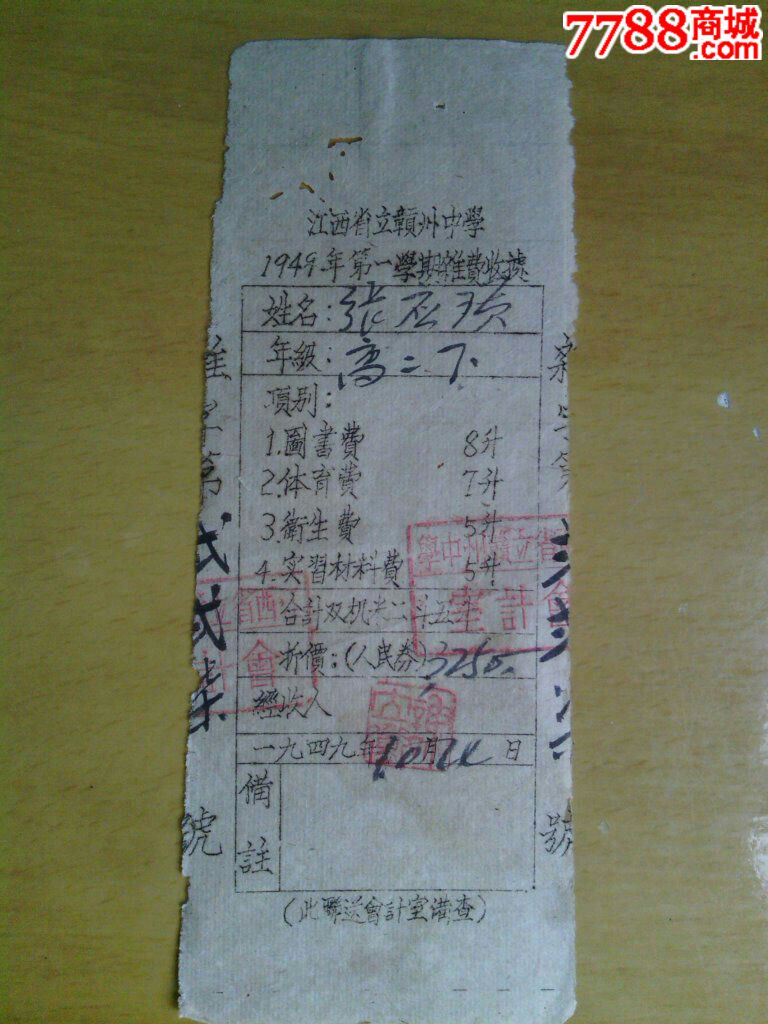 7788商城
.com
江西省立贛州中學
1949年第一學期雜費收據
姓名：張
年級：高二下
項别：
1.圖書費 8升
2.体育費 7升
3.衛生費 5升
4.实習材料費 5升
合計双机米二斗五升
折價：(人民券) 3250.
經收人
一九四九年10月 日
備註
(此聯送會計室備查)
雜字第 號
號
省立贛州中學
會計室
西省
會計